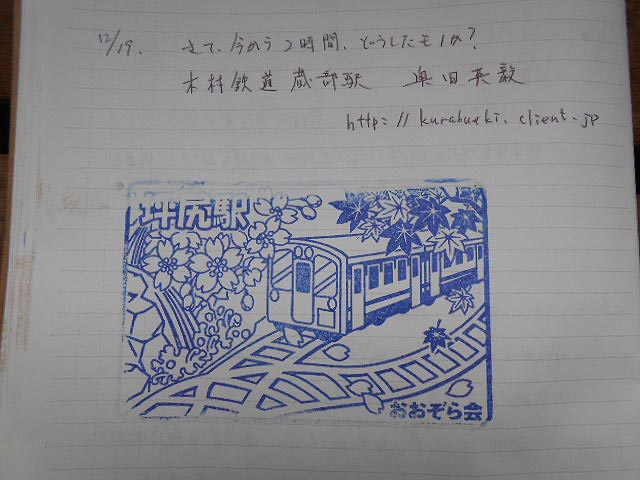 12/19. さて、今から2時間、どうしたモノか?
木村鉄道 蔵部駅 奥田英毅
http://kurabueki.client.jp
坪尻駅
おおぞら会